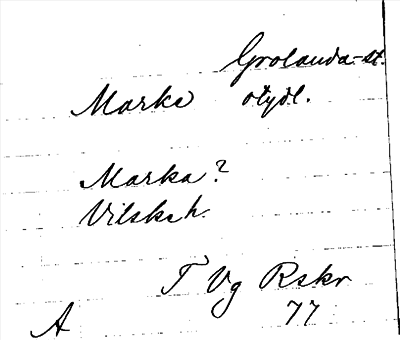 Grolanda-st.
Marke otydl.
Marka?
Vilske h.
T Vg Rskr
A 77